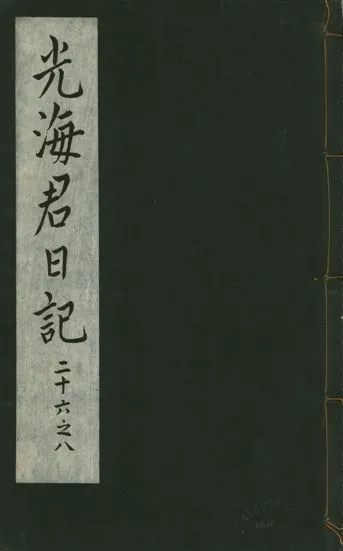 光海君日記
二十六之八